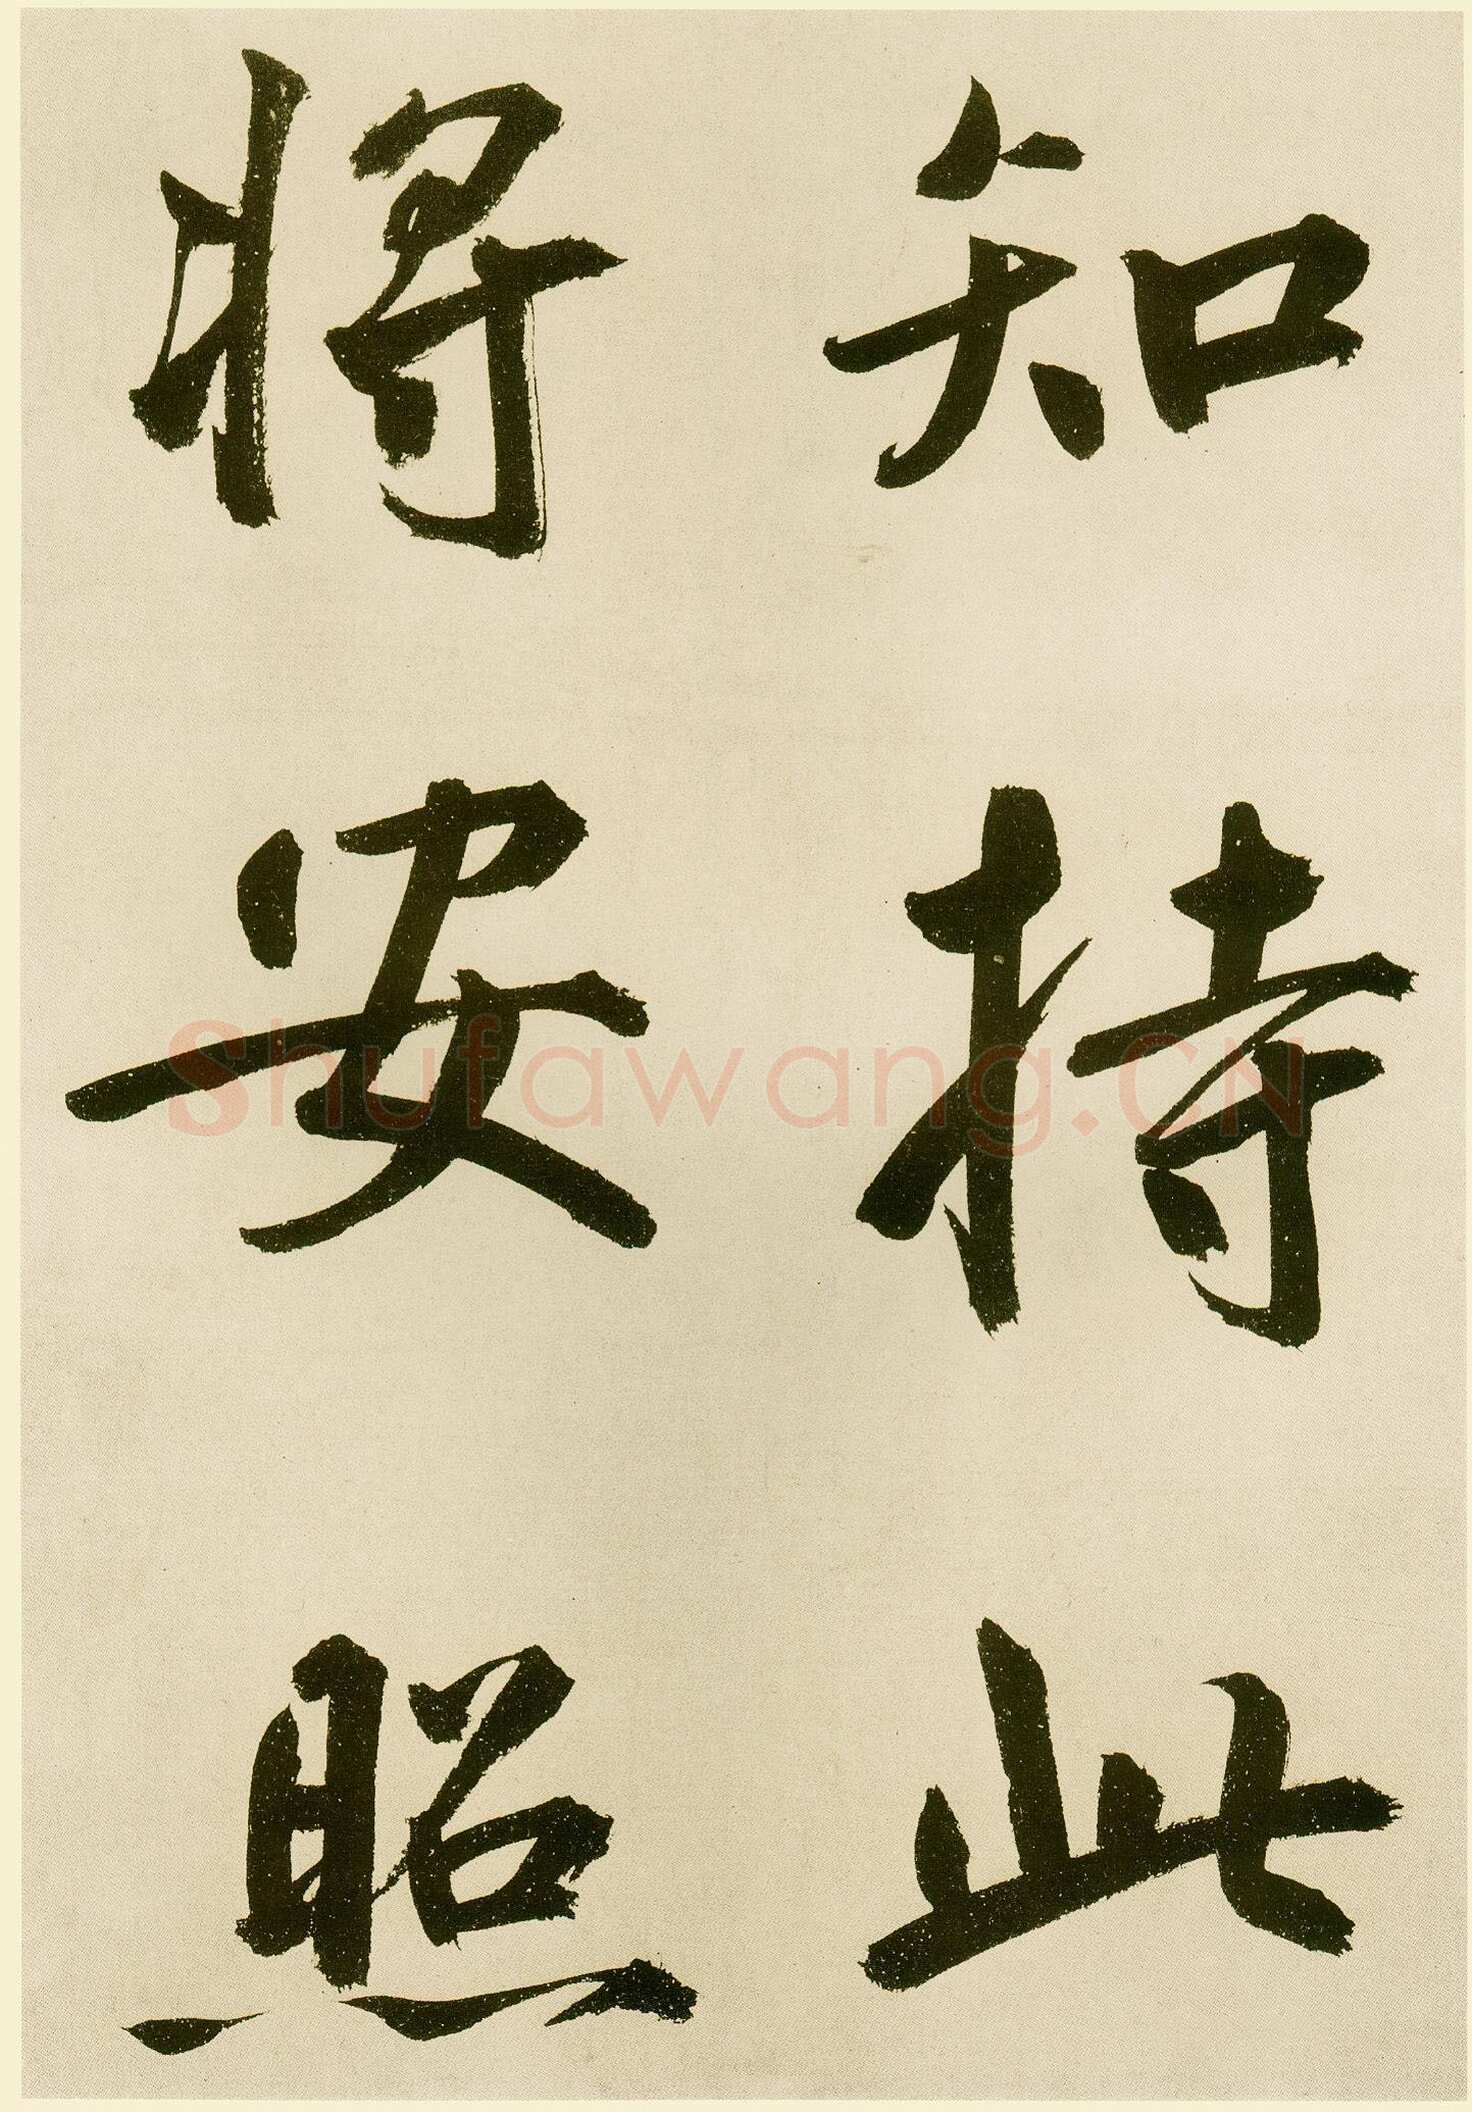 知持此
将安照
Shufawang.CN